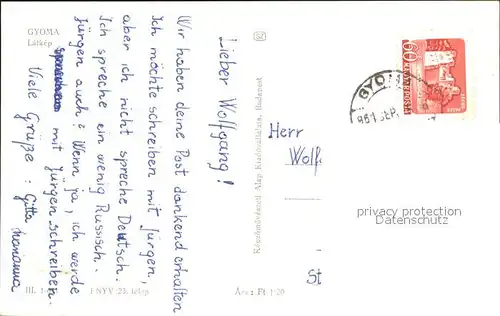 GYOMA
Látkép
Lieber Wolfgang!
Wir haben deine Post dankend erhalten
Ich möchte schreiben mit Jürgen,
aber ich nicht spreche Deutsch.
Ich spreche ein wenig Russisch.
Jürgen auch? Wenn ja, ich werde
mit Jürgen schreiben.
Viele Grüße: Gitta
Marianna
Képzőművészeti Alap Kiadóvállalata, Budapest
Herr
Wolf
St
MAGYAR POSTA
60
GYOMA
961 SEP.
privacy protection
Datenschutz
III.
Ára: Ft 1·20